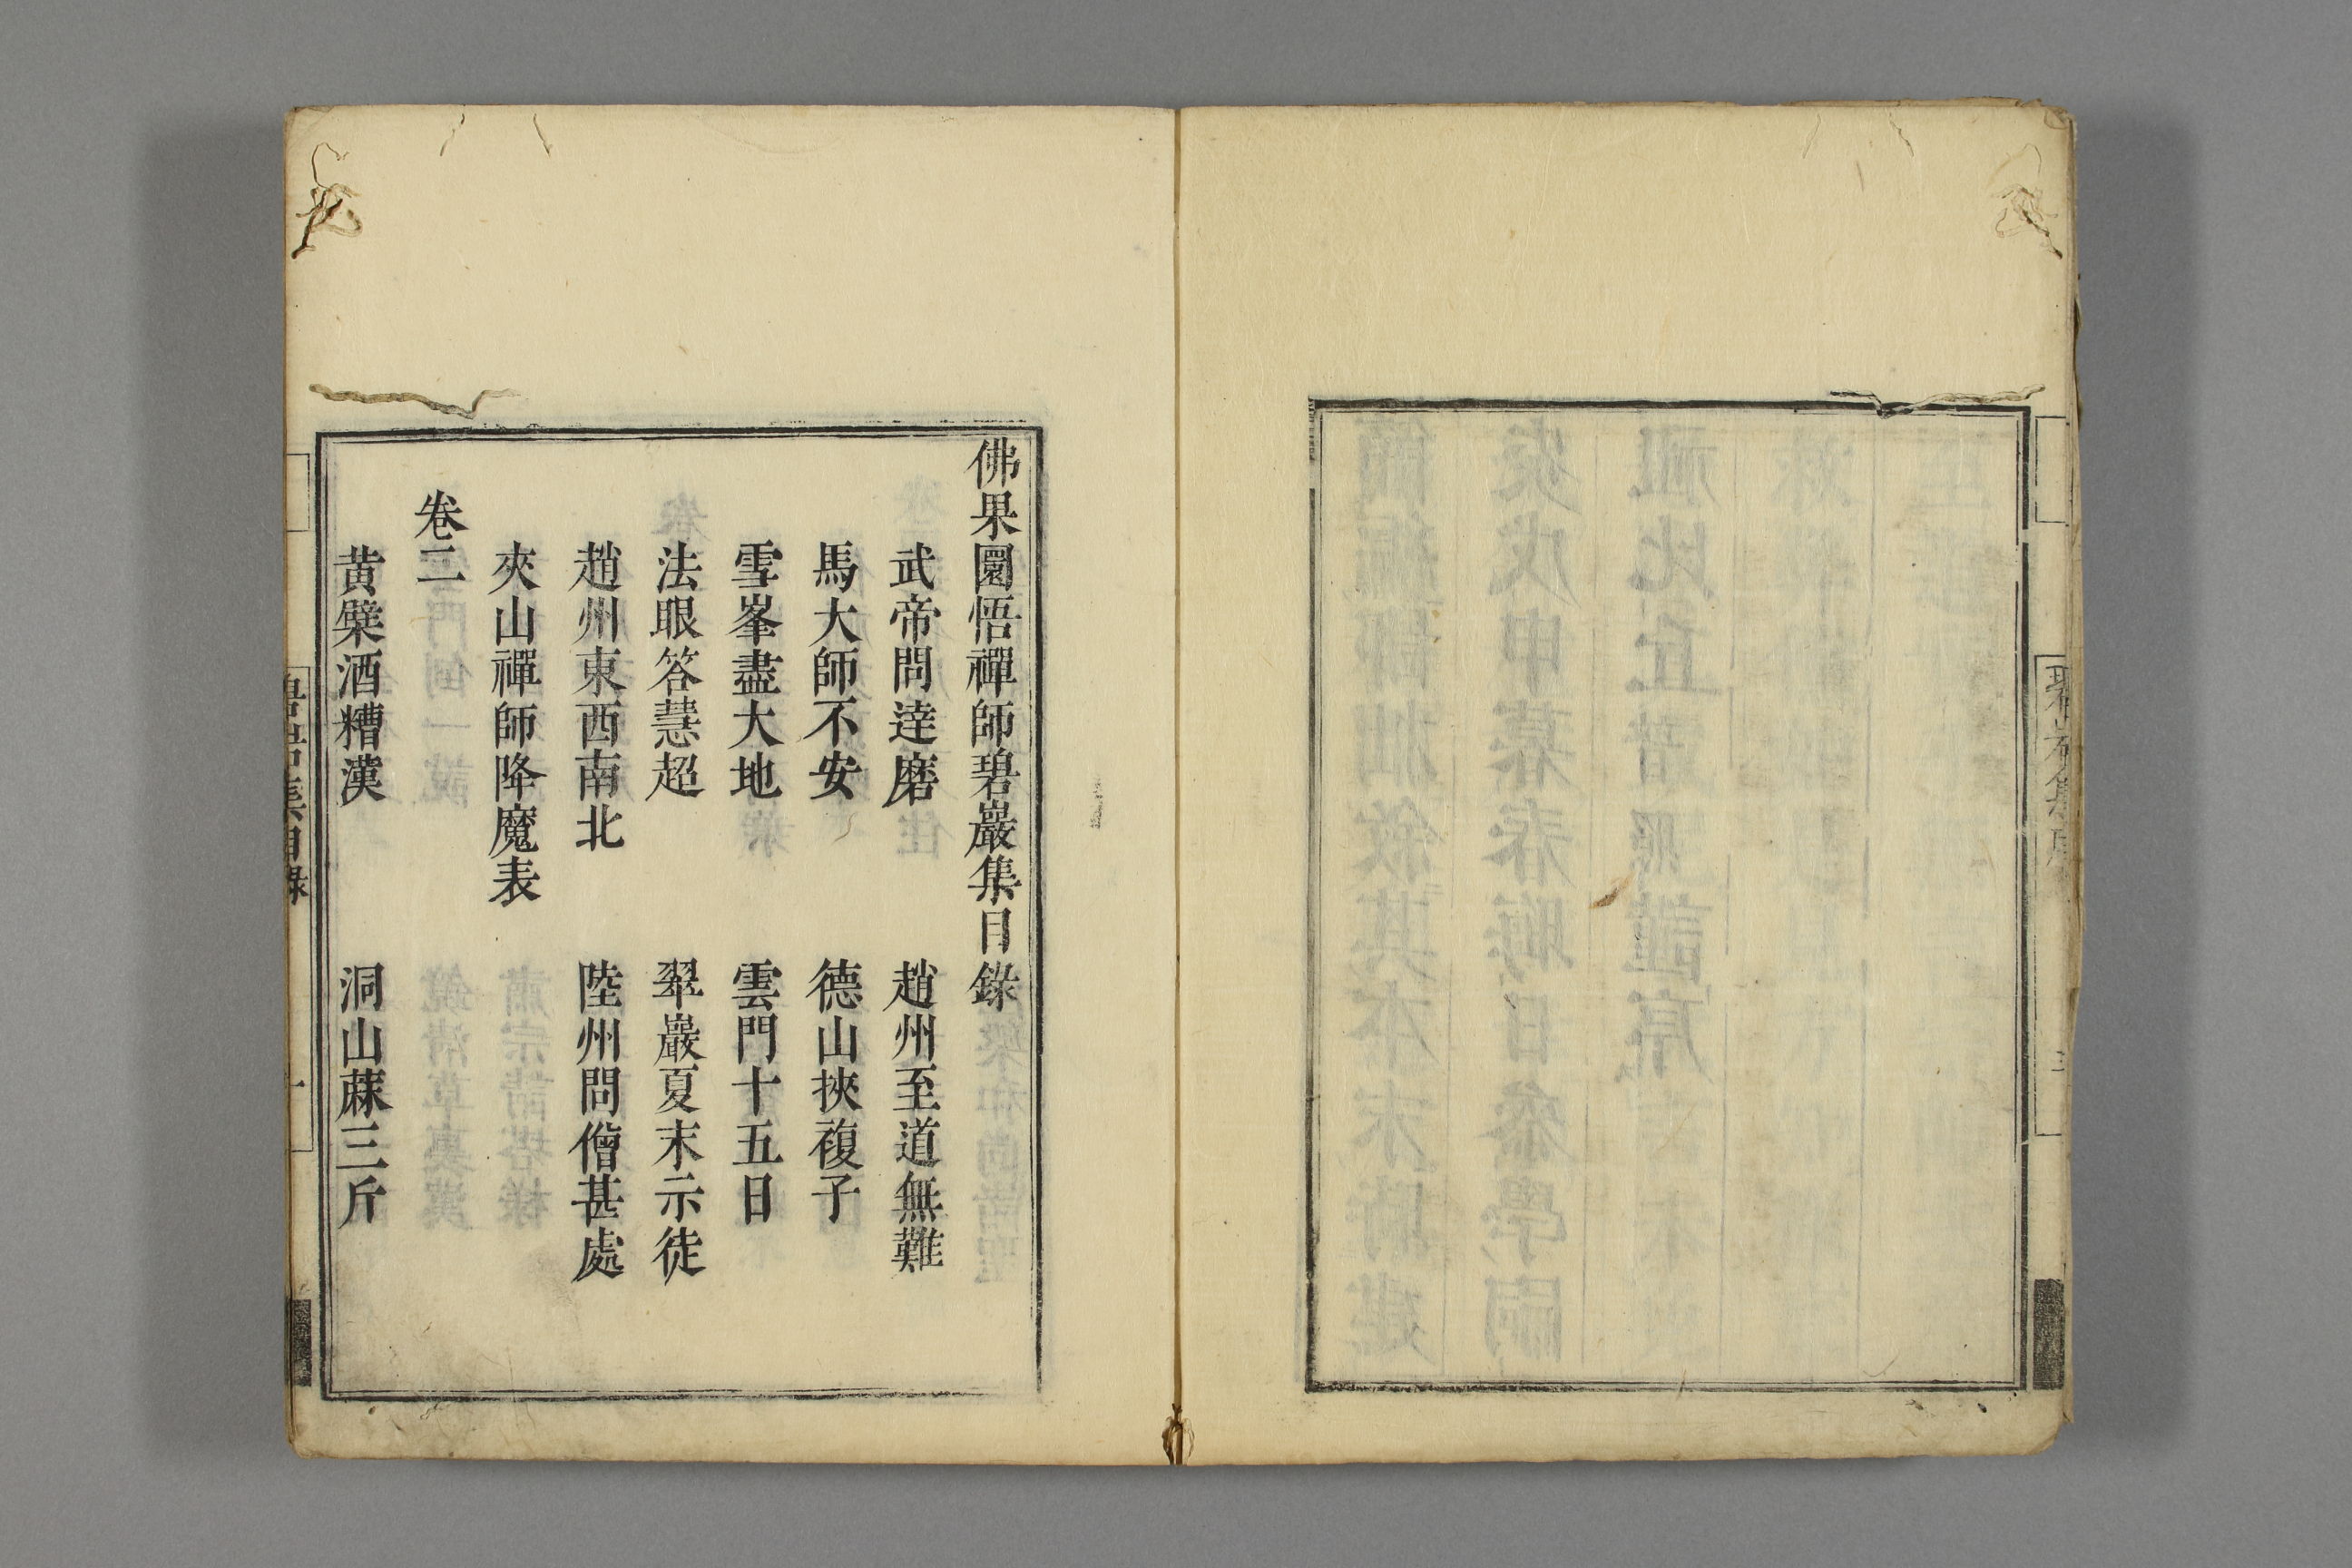 佛果圜悟禪師碧巖集目錄
武帝問達磨　趙州至道無難
馬大師不安　德山挾複子
雪峯盡大地　雲門十五日
法眼答慧超　翠巖夏末示徒
趙州東西南北　陸州問僧甚處
夾山禪師降魔表
卷二
黃檗酒糟漢　洞山蔴三斤